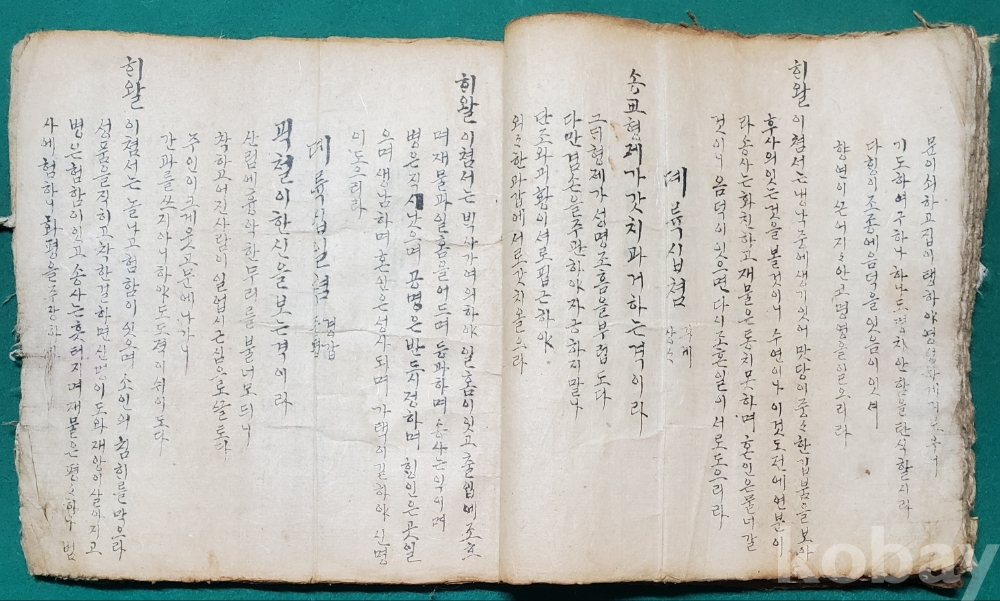 문이쇠하고집이택하야영성하게
기도하여구하나하나도되지안함을탄식할지라
다힝이조종에음덕을입음이잇셔
향연이쓴어지지안코명명을일으리라
해왈 이쳠서는냉낙중에생기잇어맛당이중중한깁붐을보아
후사의잇는것을볼것이니수연이나이것도전에연분이
라송사는화친하고재물은동치못하며혼인은물너갈
것이니음덕이잇으면다시조흔일이서로도으리라
뎨륙십쳠
송교형제가갓치과거하는격이라
그듸형제가성명조흠을부럽도다
다만겸손을주관하야자긍하지말나
단조와괴황이셔로핍근하야
외외한과갑에서로갓치올으라
해왈 이쳠서는빅사가여의하야일홈이잇고출입에조흐
며재물과일홈을어드며등과하며송사는익이며
병은직시낫으며공명은반듯시정하며행인은곳일
으며생남하며혼인은성사되며가택이길하야신명
이도으리라
뎨륙십일쳠
곽철이한신을보는격이라
산림에흉악한무리를불너모되니
착하고어진사람이일업시는심으로쏠토다
주인이크게웃고문에나가니
간과를쓰지아니하야도도적이쉬이도다
해왈 이쳠서는놀나고험함이잇으며소인의침희를막으라
성품을직히고착한걸하면신명이도와재앙이살아지고
병은험함이잇고송사는흣터지며재물은평평하나범
사에험하니화평을주관하
kobay